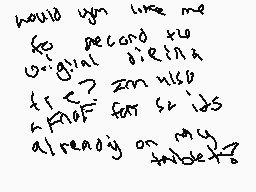 would you like me
to record the
original
? im also
a FNaF fan so its
already on my
tablet?